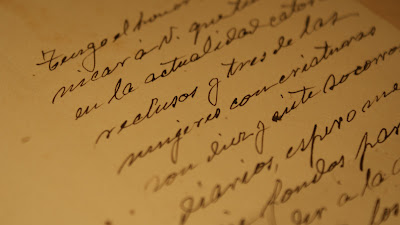 Tengo el honor
nicar á V. que tie
en la actualidad cator
reclusos y tres de las
mugeres con criaturas
son diez y siete socorros
diarios, espero me
fondos para
der á la
los